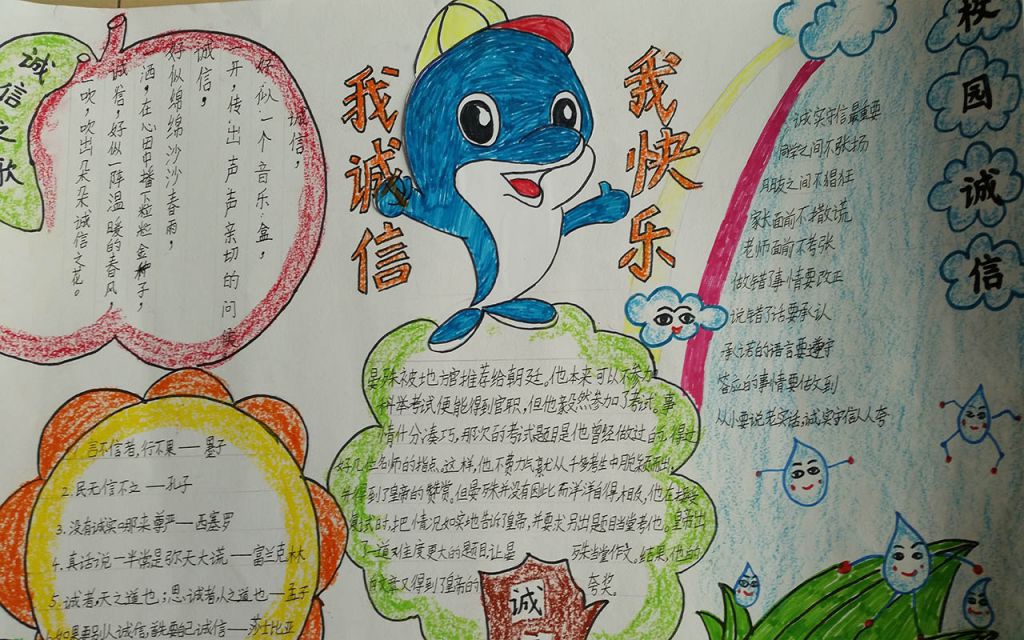 诚信之歌
诚信，
好似一个音乐盒，
开，传出声声亲切的问候
诚信，
好似绵绵沙沙春雨，
洒，在心田中播下粒粒金种子，
诚信，好似一阵温暖的春风，
一吹，吹出朵朵诚信之花。
我诚信
我快乐
校园诚信
诚实守信最重要
同学之间不张扬
朋友之间不猖狂
家长面前不撒谎
老师面前不夸张
做错了事情要改正
说错了话要承认
承诺的语言要遵守
答应的事情要做到
从小要说老实话，诚实守信人人夸
言不信者，行不果——墨子
2.民无信不立——孔子
3.没有诚实哪来尊严——西塞罗
4.真话说一半常是弥天大谎——富兰克林
5.诚者，天之道也；思诚者，人之道也——孟子
如果要别人诚信，首先要自己诚信——莎士比亚
晏殊被地方官推荐给朝廷。他本来可以不参加
科举考试便能得到官职，但他毅然参加了考试。事
情什分凑巧，那次的考试题目是他曾经做过的，得过
好几位名师的指点。这样，他不费力气就从千多考生中脱颖而出，
并得到了皇帝的赞赏。但晏殊并没有因此而洋洋自得，相反，他在接受
复试时，把情况如实地告诉了皇帝，并要求另出题目当堂考他。皇帝出
了一道难度更大的题目，让晏殊当堂作文。结果，他的
文章又得到了皇帝的夸奖。
诚